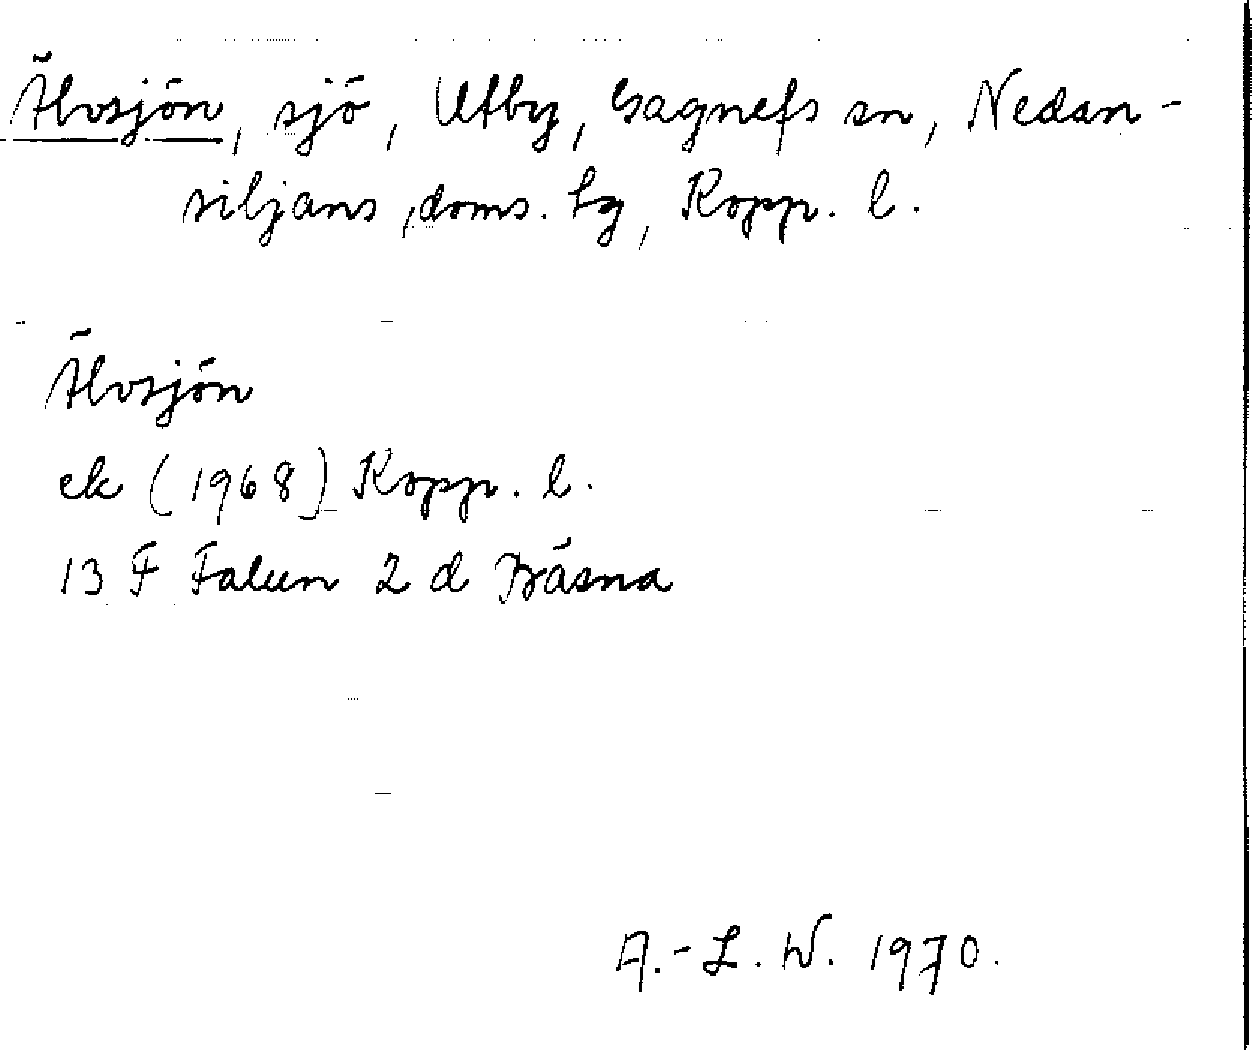 Älvsjön, sjö, Utby, Gagnefs sn, Nedan-
siljans, doms. hg, Kopp. l.
Älvsjön
ek (1968) Kopp. l.
13 F Falun 2 d Bäsna
A.-L. W. 1970.